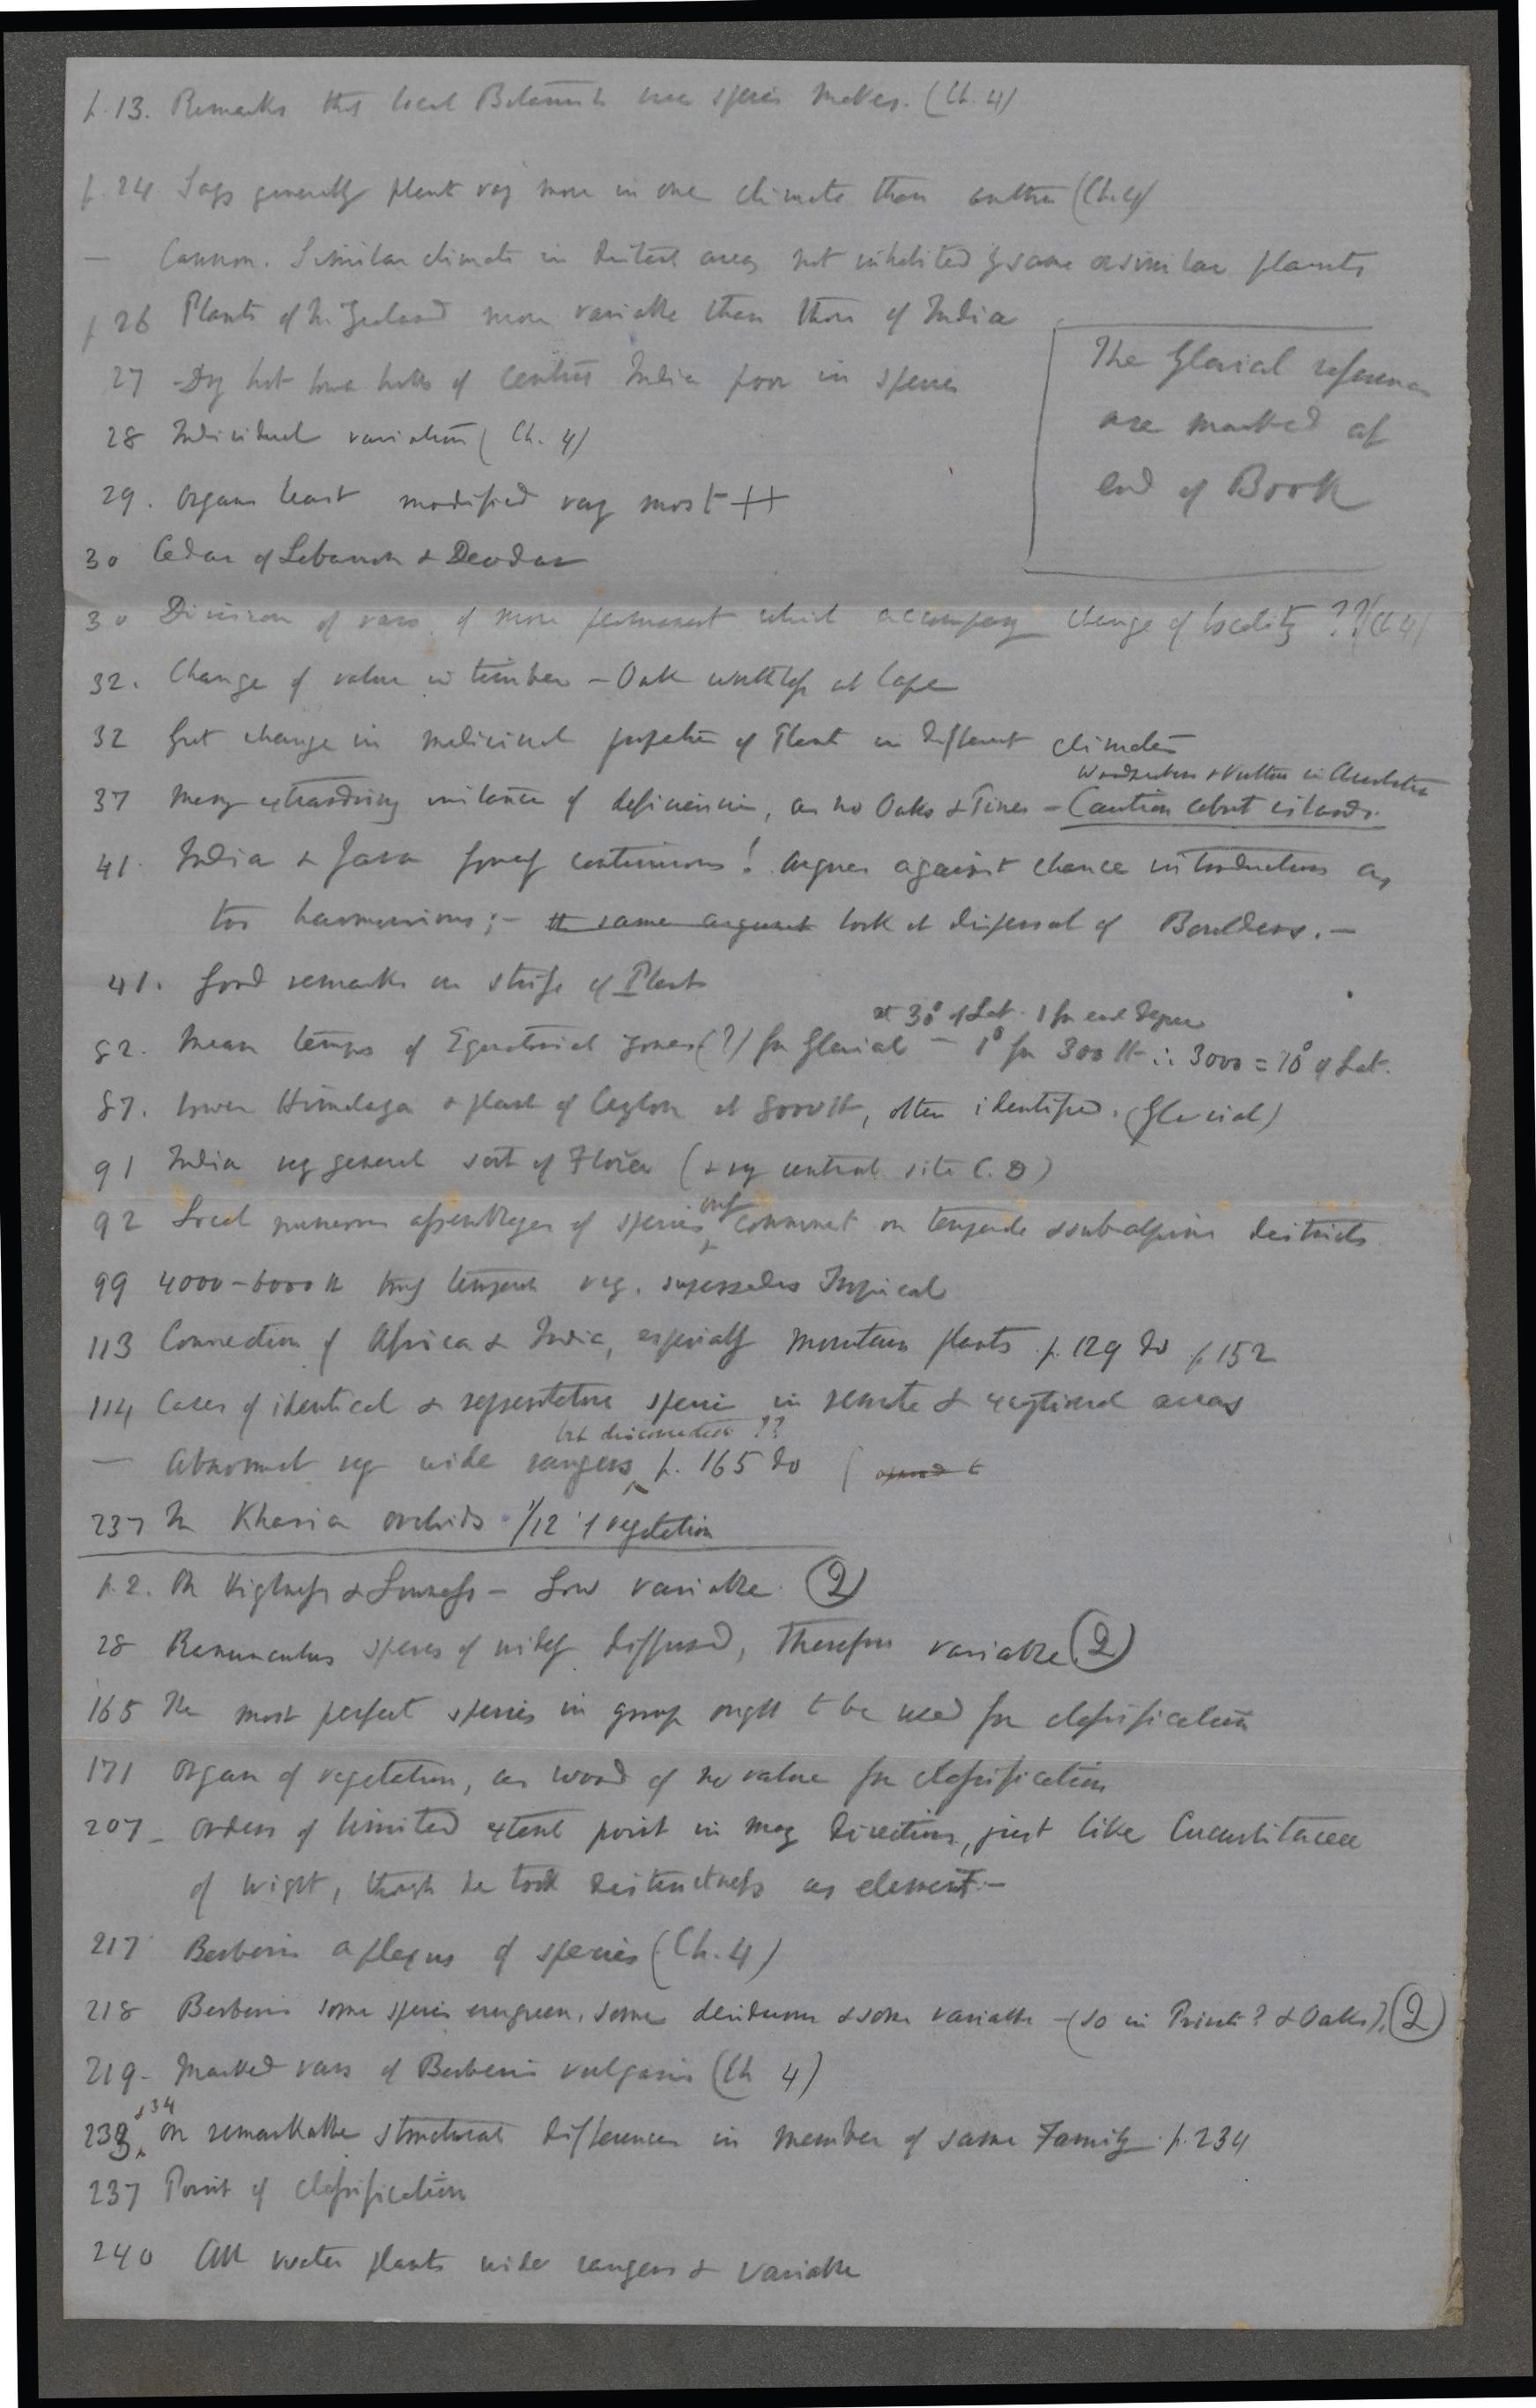 p. 13. Remarks that local Botanists are species makers. (Ch. 4)
p. 24 Says generally plant vary more in one climate than another (Ch. 4)
— Common. Similar climate in distant areas not inhabited by same or similar plants
p 26 Plants of N. Zealand more variable than those of India
27 Dry hot hills of central India poor in species
28 Individual variation (Ch. 4)
29. Organs least modified vary most ++
The Glacial references
are marked at
end of Book
30 Cedar of Lebanon & Deodar
30 Division of vars. of more permanent which accompany change of locality ??(Ch 4)
32. Change of value in timber — Oak worthless at Cape
32 Great change in medicinal properties of Plants in different climates
37 Many extraordinary instances of deficiencies, as no Oaks & Pines — Caution about islands.
41. India & Java formerly continuous! Argues against chance introduction as
too harmonious; — the same argument look at dispersal of Boulders. —
41. Good remarks on strife of Plants
at 30° of Lat. 1 for each degree
82. Mean temps of Equatorial zones (?) for Glacial — 1° for 300 ft ∴ 3000 = 10° of Lat.
87. Lower Himalaya & plants of Ceylon at 8000 ft, often identified. (Glacial)
91 India very general sort of Flora (& very central site C. D)
92 Local numerous assemblages of species only & commonest on temperate & sub-alpine districts
99 4000–6000 ft truly temperate veg. supersedes Tropical
113 Connection of Africa & India, especially mountain plants p. 129 Do p 152
114 Cases of identical & representative species in remote & exceptional areas
but disconnected ??
— Abnormal very wide rangers p. 165 Do (
237 In Khasia orchids 1/12 of vegetation
p. 2. On Highness & Lowness — Low variable. (2)
28 Ranunculus species of widely diffused, therefore variable (2)
165 The most perfect species in group ought to be used for classification
171 Organs of vegetation, as wood of no value for classification
207 — Orders of limited extent point in many directions, just like Cucurbitaceae
of Wight, though he took distinctness as element —
217 Berberis a plexus of species (Ch. 4)
218 Berberis some species evergreen, some deciduous & some variable — (so in Privet? & Oaks). (2)
219 — Marked vars of Berberis vulgaris (Ch 4)
& 34
233 On remarkable structural differences in member of same Family p. 234
237 Point of classification
240 All water plants wide rangers & variable